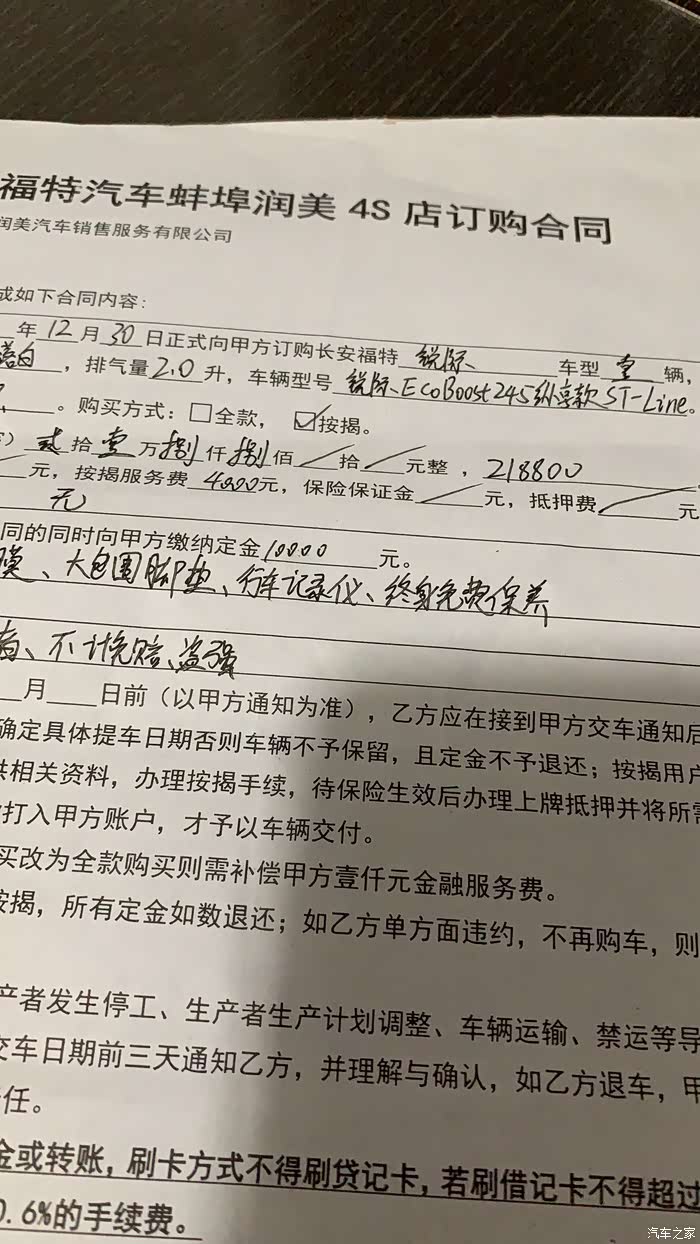 福特汽车蚌埠润美4S店订购合同
润美汽车销售服务有限公司
成如下合同内容：
年12月30日正式向甲方订购长安福特 锐际 车型 壹 辆，
白，排气量2.0升，车辆型号 锐际EcoBoost245纵享款ST-Line。
。购买方式：□全款，☑按揭。
）贰拾壹万捌仟捌佰／拾／元整，218800
元，按揭服务费4000元，保险保证金／元，抵押费／元
元
同的同时向甲方缴纳定金10000元。
膜、大包围脚垫、行车记录仪、终身免费保养
、不计免赔、盗强
月 日前（以甲方通知为准），乙方应在接到甲方交车通知后
确定具体提车日期否则车辆不予保留，且定金不予退还；按揭用户
供相关资料，办理按揭手续，待保险生效后办理上牌抵押并将所需
打入甲方账户，才予以车辆交付。
买改为全款购买则需补偿甲方壹仟元金融服务费。
按揭，所有定金如数退还；如乙方单方面违约，不再购车，则
产者发生停工、生产者生产计划调整、车辆运输、禁运等导
交车日期前三天通知乙方，并理解与确认，如乙方退车，甲
任。
金或转账，刷卡方式不得刷贷记卡，若刷借记卡不得超过
0.6%的手续费。
汽车之家